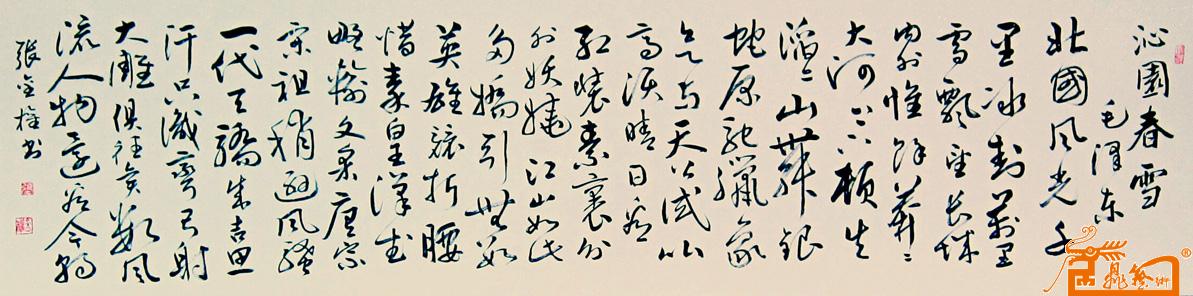 沁園春雪
毛澤東
北國風光千
里冰封萬里
雪飄望長城
内外惟餘莽〻
大河上下頓失
滔〻山舞銀
蛇原馳蠟象
欲与天公試比
高須晴日看
紅裝素裹分
外妖嬈江山如此
多嬌引無數
英雄競折腰
惜秦皇漢武
略輸文采唐宗
宋祖稍遜風騷
一代天驕成吉思
汗只識彎弓射
大雕俱往矣數風
流人物還看今朝
張金書